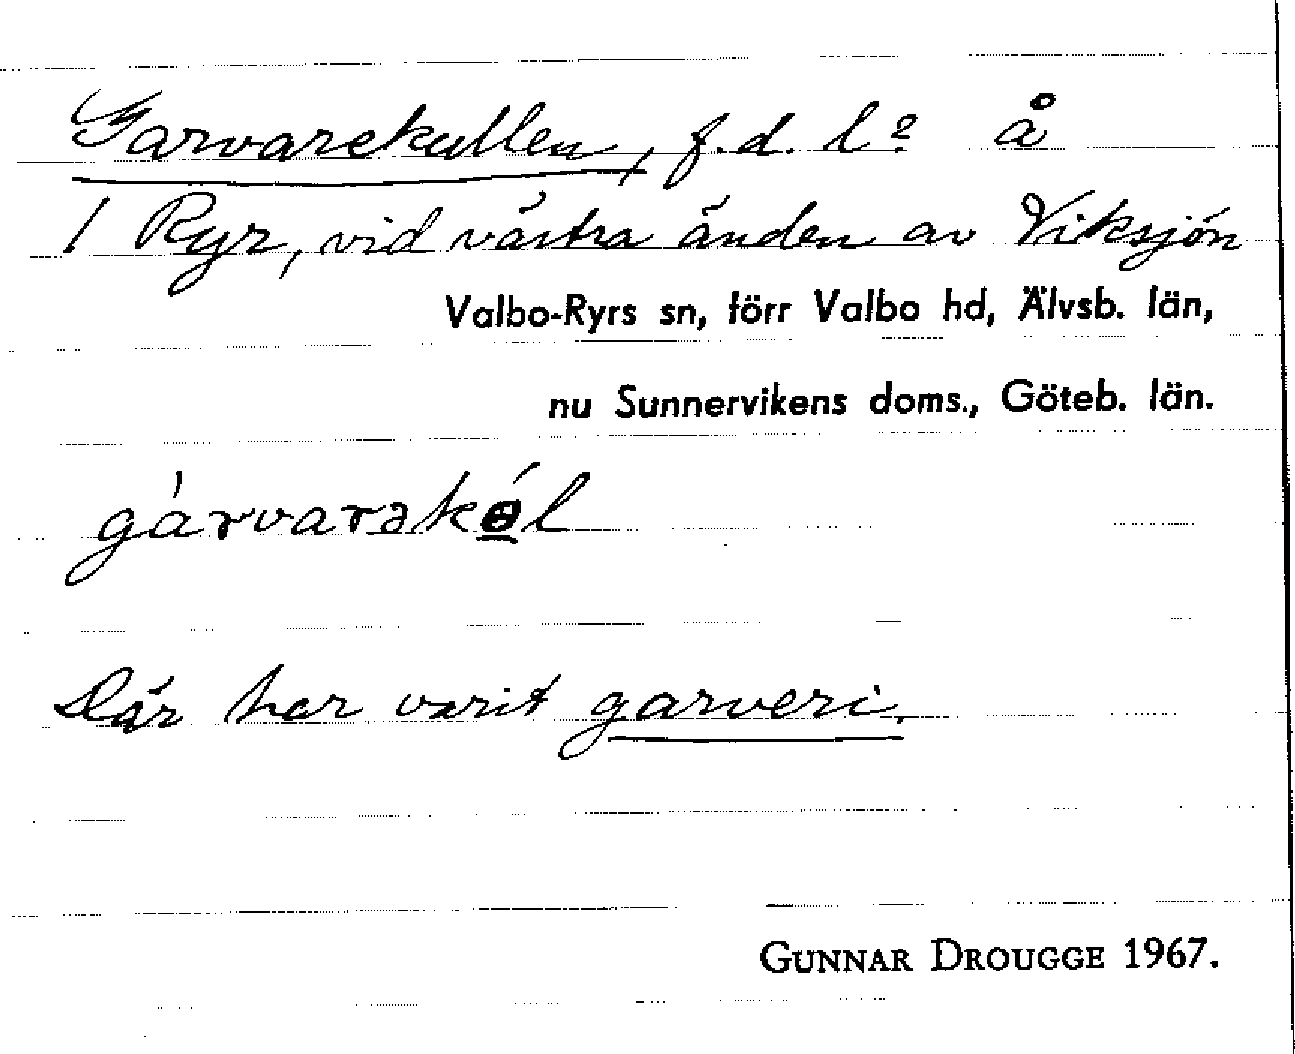 Garvarekullen, f.d. l? å
1 Ryr, vid västra änden av Viksjön
Valbo-Ryrs sn, förr Valbo hd, Älvsb. län,
nu Sunnervikens doms., Göteb. län.
gàrvarəkɵ́l
Där har varit garveri.
GUNNAR DROUGGE 1967.